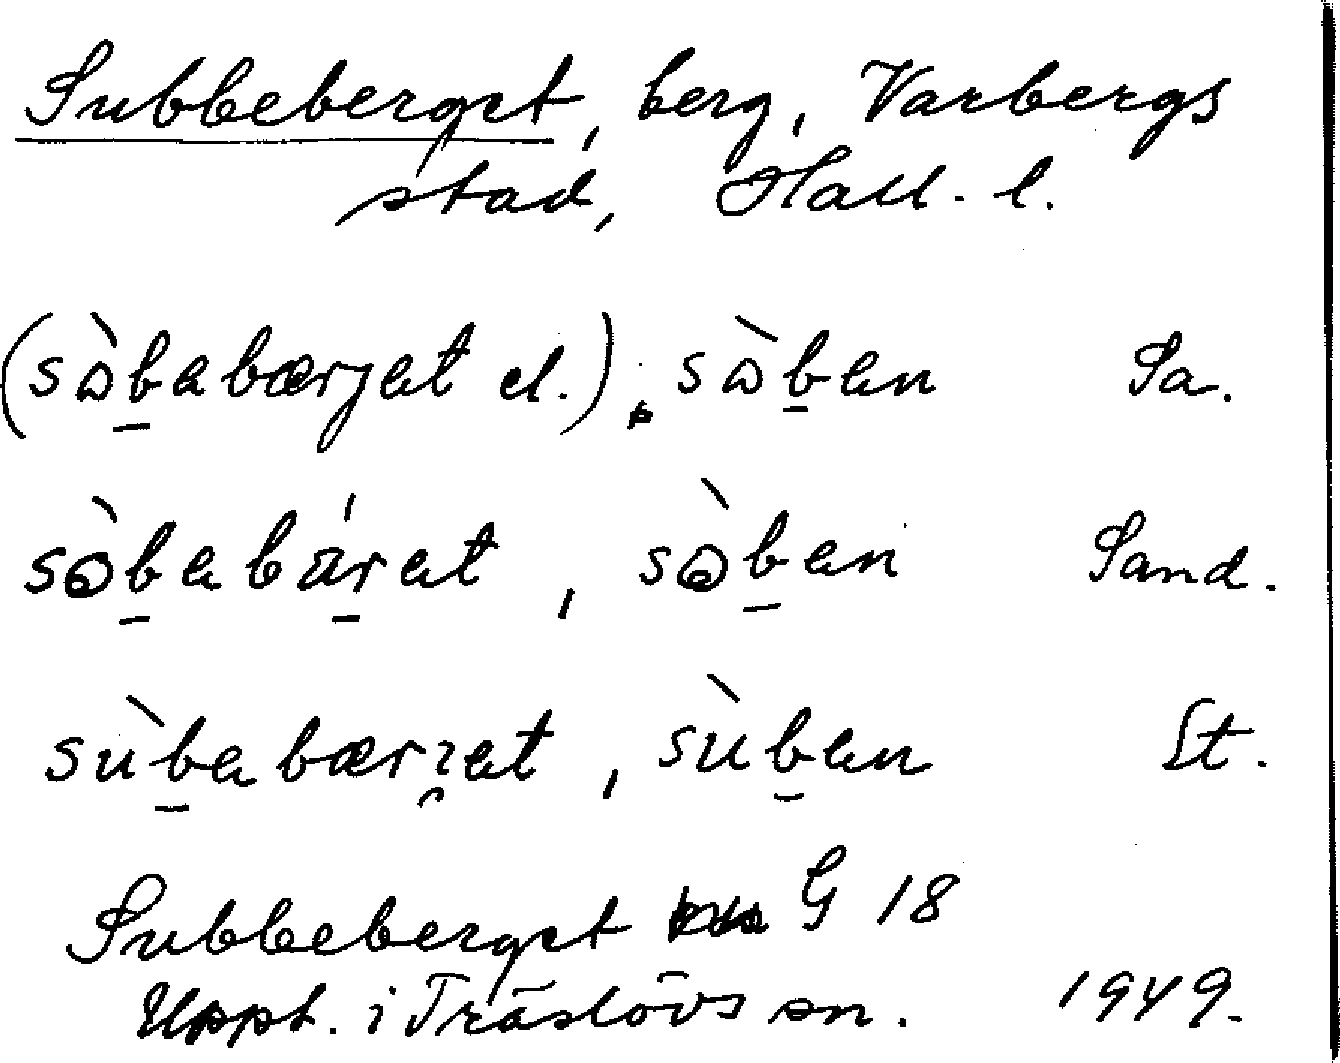 Subbeberget, berg, Varbergs
stad, Hall. l.
(sò̠babærjat el.), sò̠ban Sa.
sò̠babár̠at, sò̠ban Sand.
sùb̠abærjat, sùb̠an St.
Subbeberget G 18
Uppt. i Träslövs sn. 1949.